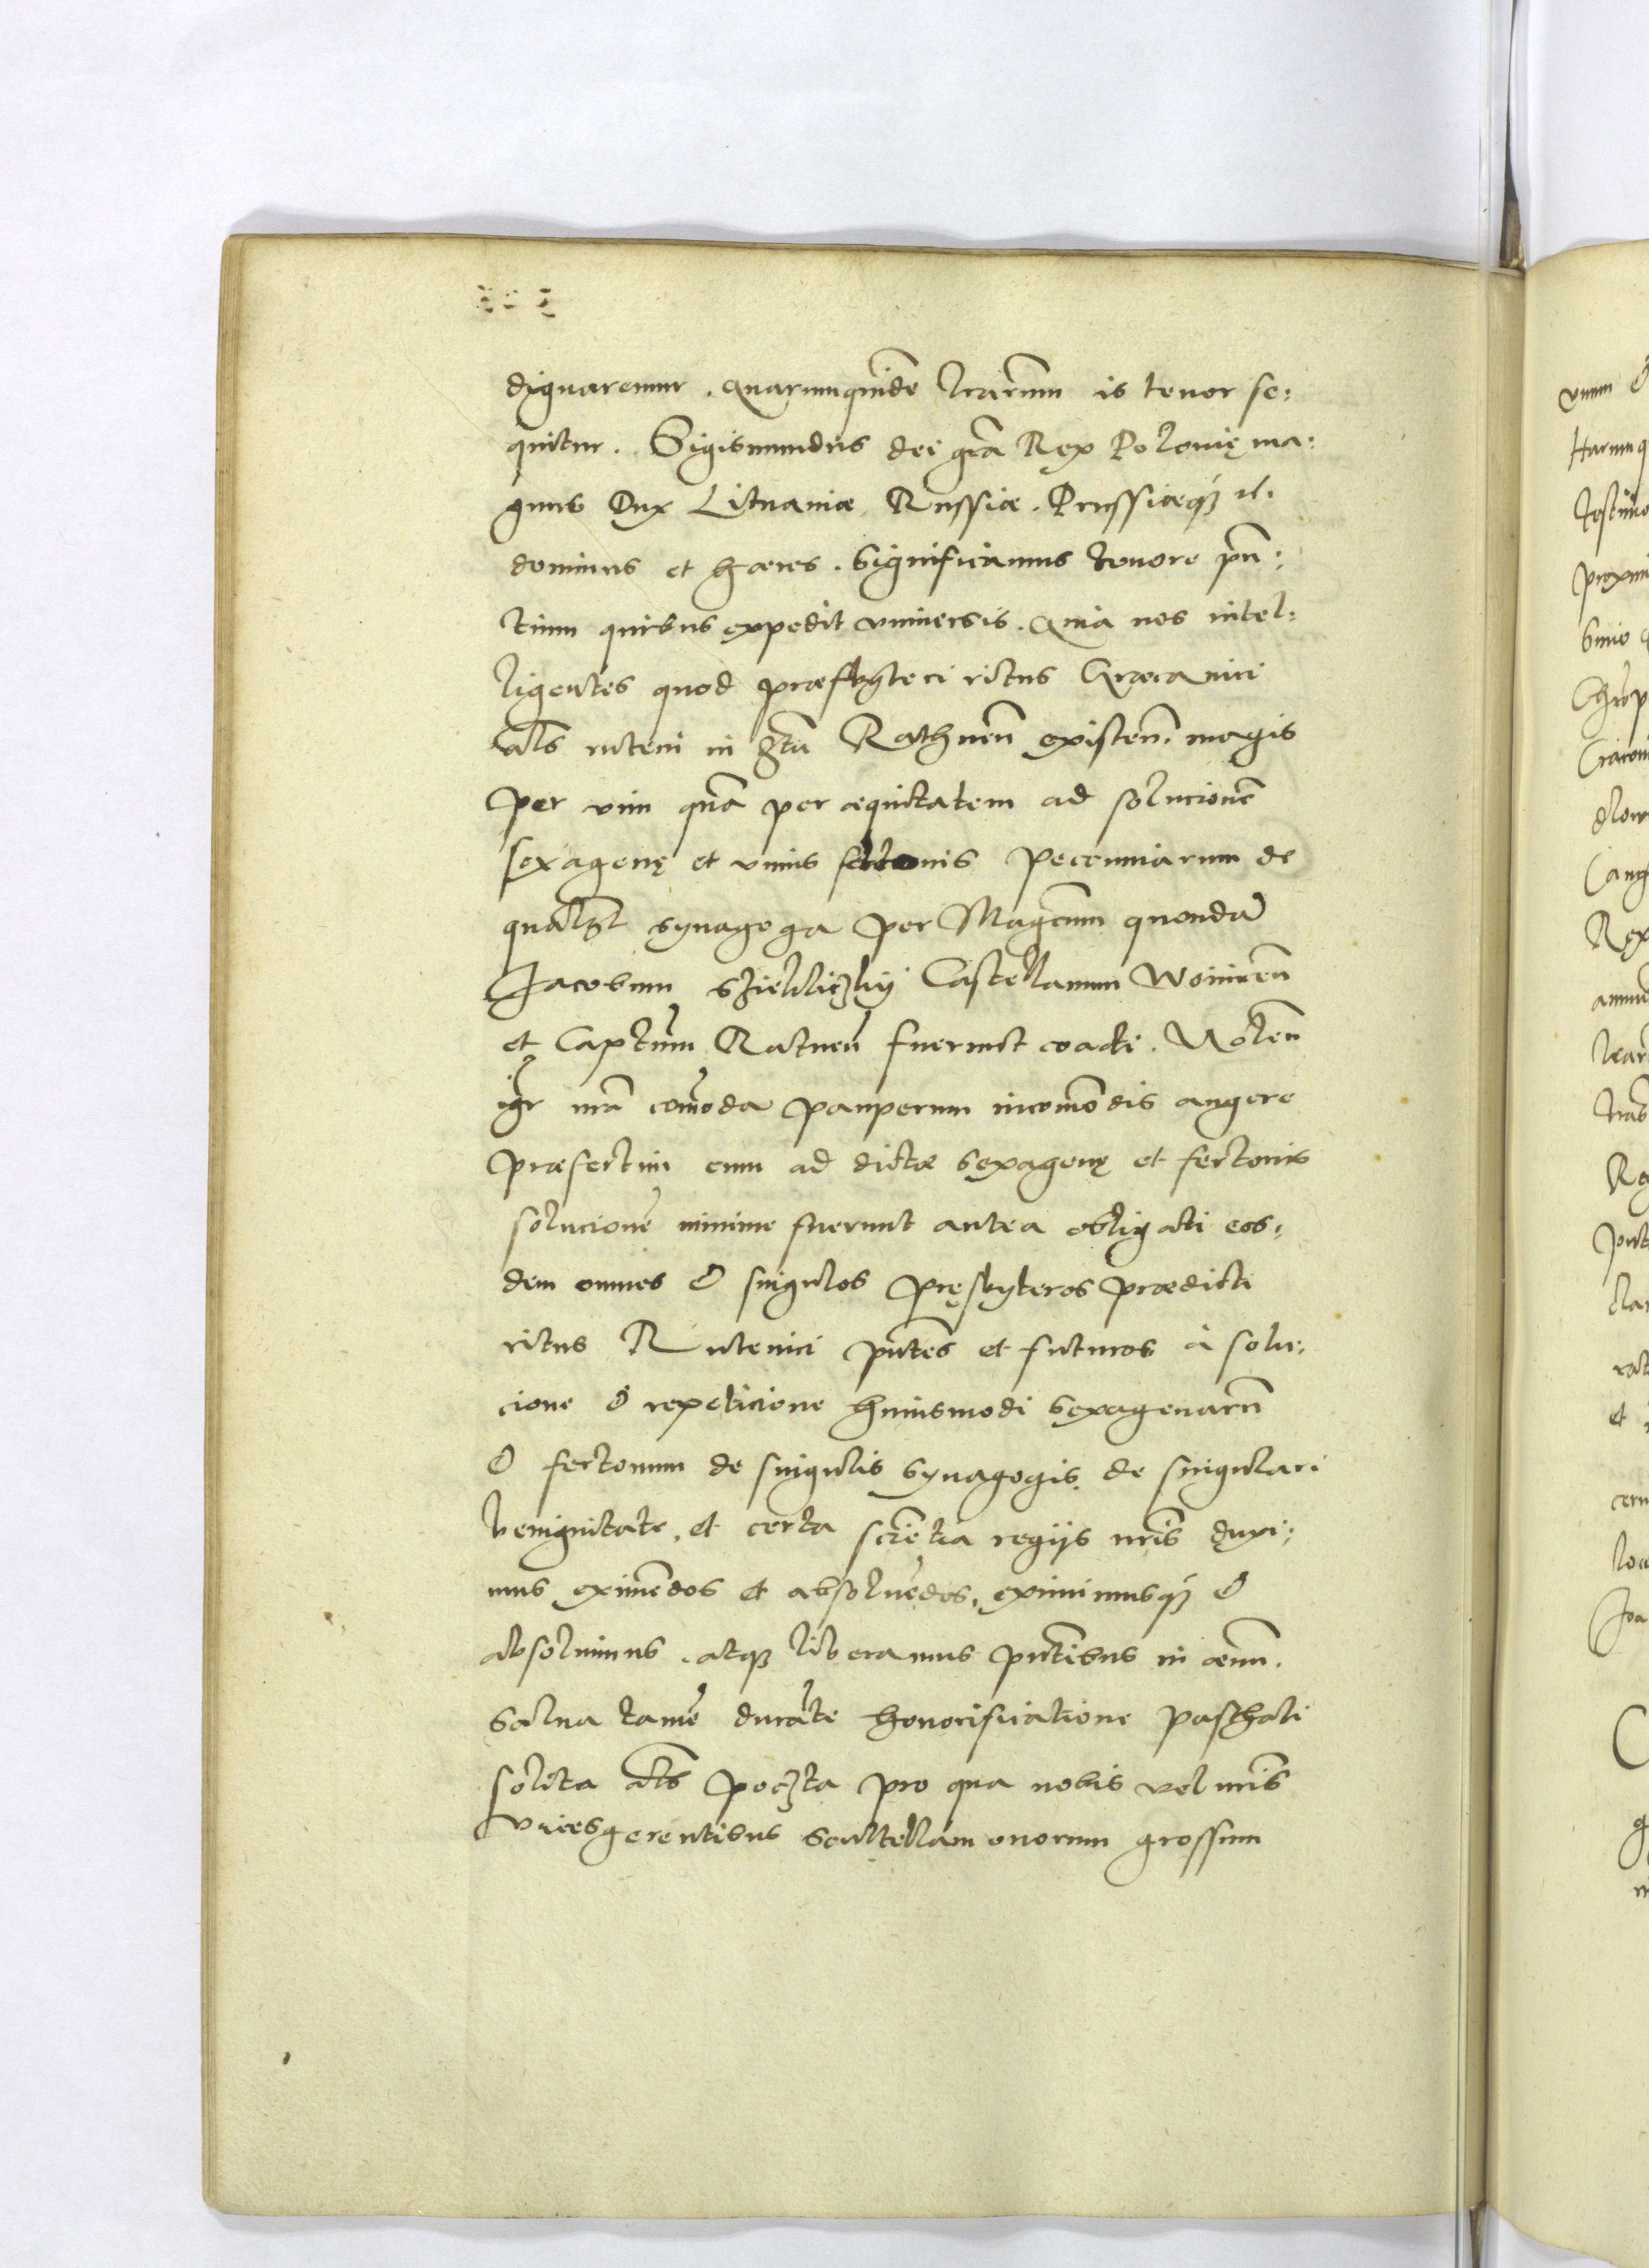 dignaremur. Quarumquidē lrārum is tenor se:
quitur. Sigismundus dei grā Rex Polonię ma:
gnus Dux Lituaniæ Russiæ. Prussiæq3 et.
dominus et hæres. Significamus tenore pn̄:
tium quibus expedit vniversis. Quia nos intel:
ligentes quod præsbyteri ritus Græcanici
als ruteni in Rathnen̄ existen̄. magis
per vim quā per æquitatem ad solucionē
sexagenę et vnius fertonis pecuniarum de
qualz synagoga per Mag̃cum quondā
Jacobum Castellanum Woinicen̄
et Captm̄ Ratnen̄ fuerunt coacti. Nolen̄
igr nrā com̄oda pauperum incomōdis augere
præsertim cum ad dictæ sexagenę et fertonis
solucionē minime fuerunt antea obligati eos:
dem omnes & singulos pręsbyteros prædicti
ritus Rutenici pn̄tes et futuros à solu:
cione & repeticione huiusmodi sexagenarū
& fertonum de singulis synagogis de singulari
benignitate, et certa sciētia regijs nrīs duxi:
mus eximēdos et absoluēdos, eximimusq3 &
absoluimus atq3 liberamus pn̄tibus in æuum.
Salua tamē durāte honorificatione paschali
solita als poczta pro qua nobis vel nrīs
vicesgerentibus scultellam ouorum grossum

vnum &
Harum q
testimo